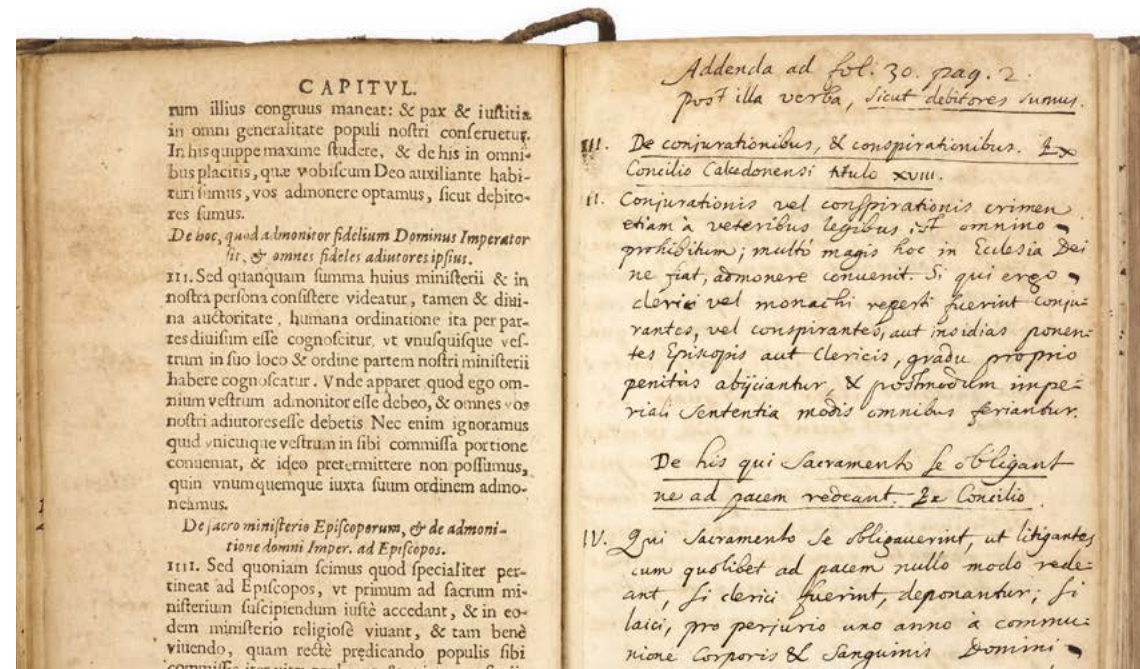 CAPITVL.
rum illius congruus maneat: & pax & iuſtitia
in omni generalitate populi noſtri conſeruetur.
In his quippe maxime ſtudere, & de his in omni-
bus placitis, quæ vobiſcum Deo auxiliante habi-
turi ſumus, vos admonere optamus, ſicut debito-
res ſumus.
De hoc, quod admonitor fidelium Dominus Imperator
ſit, & omnes fideles adiutores ipſius.
III. Sed quanquam ſumma huius miniſterii & in
noſtra perſona conſiſtere videatur, tamen & diui-
na auctoritate, humana ordinatione ita per par-
tes diuiſum eſſe cognoſcitur, vt vnuſquiſque veſ-
trum in ſuo loco & ordine partem noſtri miniſterii
habere cognoſcatur. Vnde apparet quod ego om-
nium veſtrum admonitor eſſe debeo, & omnes vos
noſtri adiutores eſſe debetis. Nec enim ignoramus
quid vnicuique veſtrum in ſibi commiſſa portione
conueniat, & ideo pretermittere non poſſumus,
quin vnumquemque iuxta ſuum ordinem admo-
neamus.
De ſacro miniſterio Epiſcoporum, & de admoni-
tione domni Imper. ad Epiſcopos.
IIII. Sed quoniam ſcimus quod ſpecialiter per-
tineat ad Epiſcopos, vt primum ad ſacrum mi-
niſterium ſuſcipiendum iuſtè accedant, & in eo-
dem miniſterio religioſè viuant, & tam benè
viuendo, quam rectè prędicando populis ſibi
Addenda ad fol. 30. pag. 2.
post illa verba, sicut debitores sumus.
III. De conjurationibus, & conspirationibus. Ex
Concilio Calcedonensi titulo XVIII.
II. Conjurationis vel conspirationis crimen
etiam à veteribus legibus est omnino
prohibitum; multò magis hoc in Ecclesia Dei
ne fiat, admonere convenit. Si qui ergo
clerici vel monachi reperti fuerint conju-
rantes, vel conspirantes, aut insidias ponen=
tes Episcopis aut Clericis, gradu proprio
penitùs abijciantur, & postmodùm impe=
riali sententia modis omnibus feriantur.
De his qui sacramento se obligant
ne ad pacem redeant. Ex Concilio
IV. Qui sacramento se obligauerint, ut litigantes
cum quolibet ad pacem nullo modo rede=
ant, si clerici fuerint, deponantur; si
laici, pro perjurio uno anno à commu=
nione Corporis & Sanguinis Domini